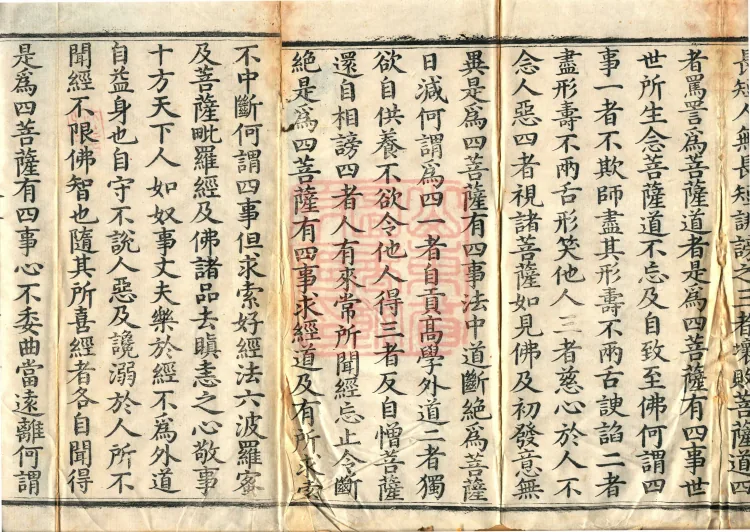 長短人無長短誹謗之三者壞敗菩薩道四
者罵詈爲菩薩道者是爲四菩薩有四事世
世所生念菩薩道不忘及自致至佛何謂四
事一者不欺師盡其形壽不兩舌諛諂二者
盡形壽不兩舌形笑他人三者慈心於人不
念人惡四者視諸菩薩如見佛及初發意無
異是爲四菩薩有四事法中道斷絕爲菩薩
日減何謂爲四一者自貢高學外道二者獨
欲自供養不欲令他人得三者反自憎菩薩
還自相謗四者人有來常所聞經忘止令斷
絕是爲四菩薩有四事求經道及有所求索
不中斷何謂四事但求索好經法六波羅蜜
及菩薩毗羅經及佛諸品去瞋恚之心敬事
十方天下人如奴事丈夫樂於經不爲外道
自益身也自守不說人惡及讒溺於人所不
聞經不限佛智也隨其所喜經者各自聞得
是爲四菩薩有四事心不委曲當遠離何謂